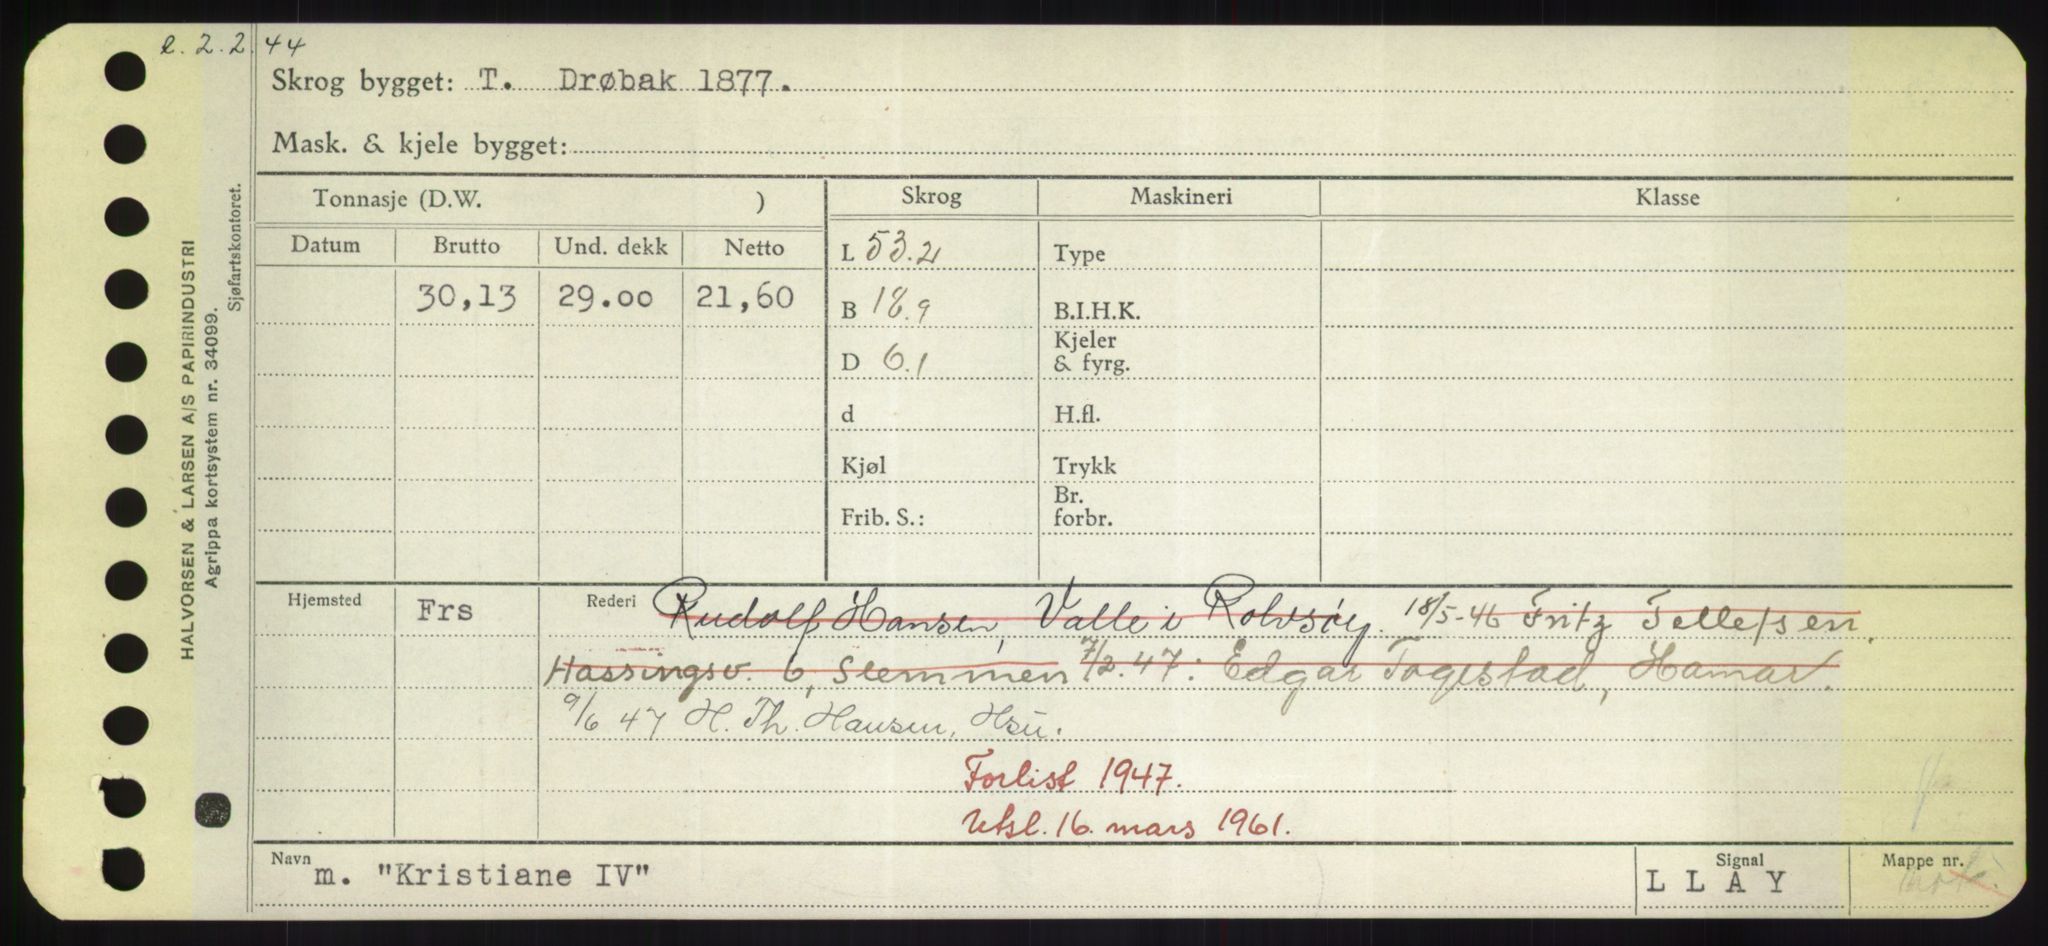 e. 2.2.44
Skrog bygget: T. Drøbak 1877.
Mask. & kjele bygget:
HALVORSEN & LARSEN A/S PAPIRINDUSTRI
Agrippa kortsystem nr. 34099.
Sjøfartskontoret.
Tonnasje (D.W. ) Skrog Maskineri Klasse
Datum Brutto Und. dekk Netto
L 53.2 Type
30,13 29.00 21,60
B 18.9 B.I.H.K.
D 6.1 Kjeler & fyrg.
d H.fl.
Kjøl Trykk
Frib. S.: Br. forbr.
Hjemsted Frs Rederi Rudolf Hansen, Valle i Rolvsøy. 18/5-46 Fritz Tellefsen,
Hassingsv. 6, Slemmen 7/2.47: Edgar Togestad, Hamar.
9/6 47 H. Th. Hansen, Hsu.
Forlist 1947.
Utsl. 16. mars 1961.
Navn m. "Kristiane IV" Signal L L A Y Mappe nr.